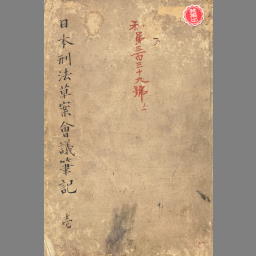 日本刑法草案會議筆記 壱
第三百三十九號